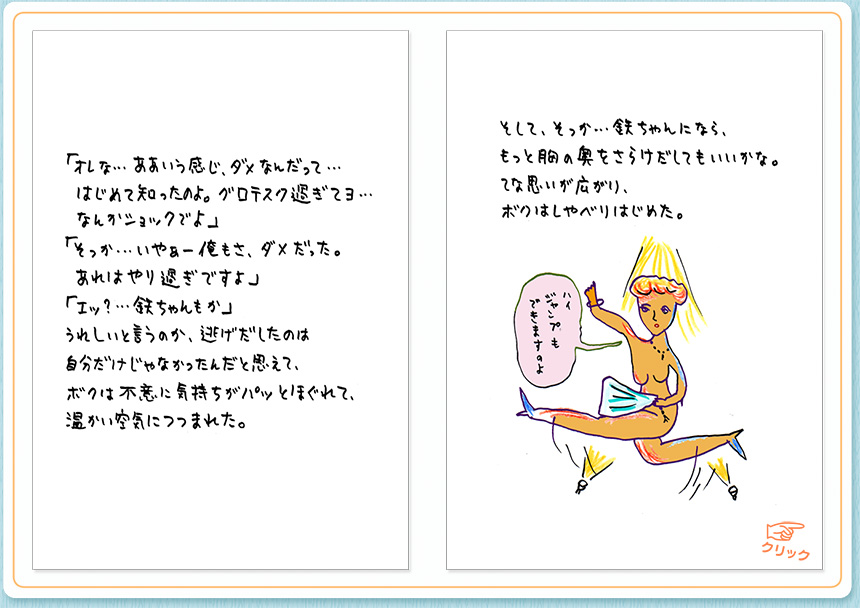 「オレな…ああいう感じ、ダメなんだって…
はじめて知ったのよ。グロテスク過ぎてヨ…
なんかショックでよ」
「そっか…いやぁー俺もさ、ダメだった。
あれはやり過ぎですよ」
「エッ?…鉄ちゃんもか」
うれしいと言うのか、逃げだしたのは
自分だけじゃなかったんだと思えて、
ボクは不意に気持ちがパッとほぐれて、
温かい空気につつまれた。
そして、そっか…鉄ちゃんになら、
もっと胸の奥をさらけだしてもいいかな。
てな思いが広がり、
ボクはしゃべりはじめた。
ハイ
ジャンプも
できますのよ
クリック